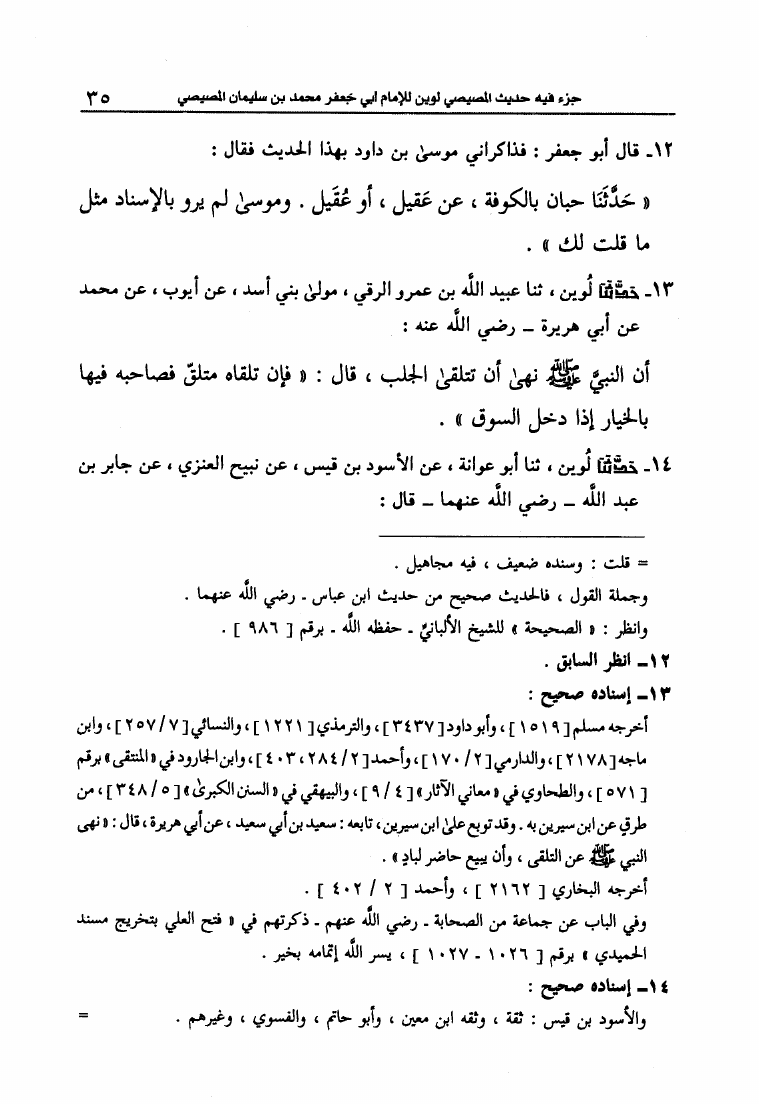 جزء فيه حديث المصيصي لوين للإمام ابي جعفر محمد بن سليمان المصيصي ٣٥
١٢ـ قال أبو جعفر : فذاكراني موسىٰ بن داود بهذا الحديث فقال :
« حَدَّثَنَا حبان بالكوفة ، عن عَقيل ، أو عُقَيل . وموسىٰ لم يرو بالإسناد مثل
ما قلت لك » .
١٣ـ حدَّثنا لُوين ، ثنا عبيد اللَّه بن عمرو الرقي ، مولىٰ بني أسد ، عن أيوب ، عن محمد
عن أبي هريرة ـ رضي اللَّه عنه :
أن النبيَّ ﷺ نهىٰ أن تتلقىٰ الجلب ، قال : « فإن تلقاه متلقّ فصاحبه فيها
بالخيار إذا دخل السوق » .
١٤ـ حدَّثنا لُوين ، ثنا أبو عوانة ، عن الأسود بن قيس ، عن نبيح العنزي ، عن جابر بن
عبد اللَّه ـ رضي اللَّه عنهما ـ قال :
= قلت : وسنده ضعيف ، فيه مجاهيل .
وجملة القول ، فالحديث صحيح من حديث ابن عباس ـ رضي اللَّه عنهما .
وانظر : « الصحيحة » للشيخ الألبانيِّ ـ حفظه اللَّه ـ برقم [ ٩٨٦ ] .
١٢ـ انظر السابق .
١٣ـ إسناده صحيح :
أخرجه مسلم [ ١٥١٩ ] ، وأبو داود [ ٣٤٣٧ ] ، والترمذي [ ١٢٢١ ] ، والنسائي [ ٧ / ٢٥٧ ] ، وابن
ماجه [ ٢١٧٨ ] ، والدارمي [ ٢ / ١٧٠ ] ، وأحمد [ ٢ / ٢٨٤ ، ٤٠٣ ] ، وابن الجارود في « المنتقى » برقم
[ ٥٧١ ] ، والطحاوي في « معاني الآثار » [ ٤ / ٩ ] ، والبيهقي في « السنن الكبرىٰ » [ ٥ / ٣٤٨ ] ، من
طرق عن ابن سيرين به . وقد توبع علىٰ ابن سيرين ، تابعه : سعيد بن أبي سعيد ، عن أبي هريرة ، قال : « نهى
النبي ﷺ عن التلقى ، وأن يبيع حاضر لبادٍ » .
أخرجه البخاري [ ٢١٦٢ ] ، وأحمد [ ٢ / ٤٠٢ ] .
وفي الباب عن جماعة من الصحابة ـ رضي اللَّه عنهم ـ ذكرتهم في « فتح العلي بتخريج مسند
الحميدي » برقم [ ١٠٢٦ ـ ١٠٢٧ ] ، يسر اللَّه إتمامه بخير .
١٤ـ إسناده صحيح :
والأسود بن قيس : ثقة ، وثقه ابن معين ، وأبو حاتم ، والفسوي ، وغيرهم . =